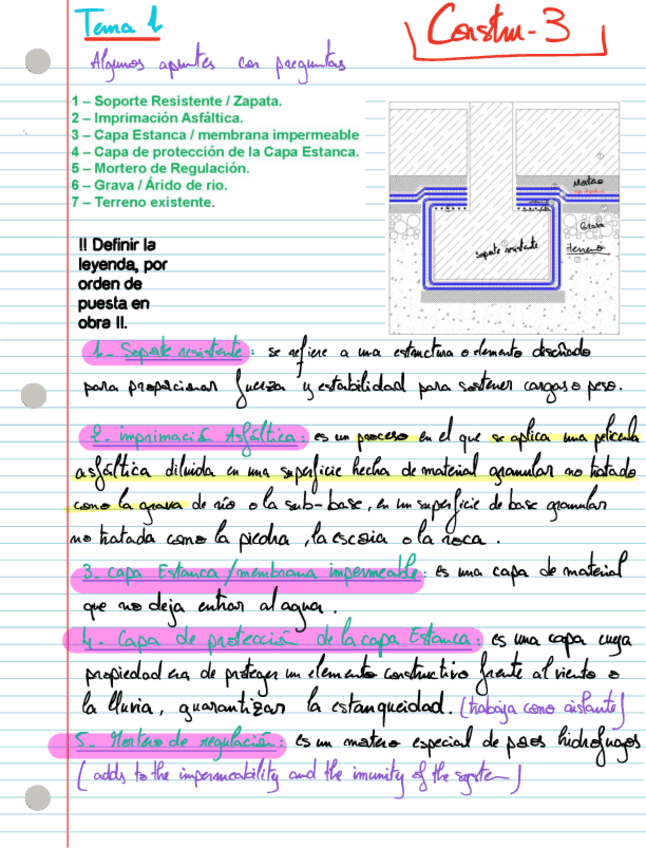 Tema 1
Constru-3
Algunos apuntes con preguntas
1 – Soporte Resistente / Zapata.
2 – Imprimación Asfáltica.
3 – Capa Estanca / membrana impermeable
4 – Capa de protección de la Capa Estanca.
5 – Mortero de Regulación.
6 – Grava / Árido de rio.
7 – Terreno existente.
Grava
terreno
soporte resistente
!! Definir la
leyenda, por
orden de
puesta en
obra !!.
1- Soporte resistente: se refiere a una estructura o elemento diseñado
para proporcionar fuerza y estabilidad para sostener cargas o peso.
2- imprimación Asfáltica: es un proceso en el que se aplica una película
asfáltica diluida en una superficie hecha de material granular no tratado
como la grava de río o la sub-base, en un superficie de base granular
no tratada como la piedra, la escoria o la roca.
3- capa Estanca / membrana impermeable: es una capa de material
que no deja entrar al agua.
4- Capa de protección de la capa Estanca: es una capa cuya
propiedad era de proteger un elemento constructivo frente al viento o
la lluvia, guarantizar la estanqueidad. (trabaja como aislante)
5- Mortero de regulación: es un mortero especial de poros hidrofugos
(adds to the impermeability and the imunity of the system)